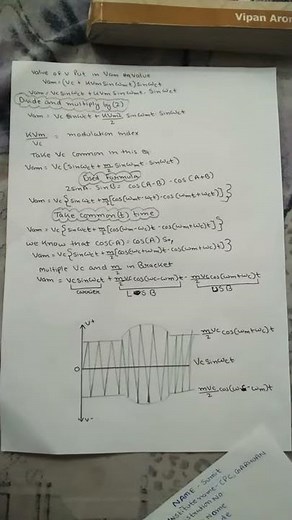 Vipan Aror
Value of V Put in Vam eqvalue
Vam = (Vc + KVm Sinωmt) Sinωct
Vam = Vc Sinωct + KVm Sinωmt. Sinωct
Divide and multiply by (2)
Vam = Vc Sinωct + KVm2/2 Sinωmt. Sinωct
KVm/Vc = modulation index
Take Vc Common in this eq
Vam = Vc (Sinωct + m/2 Sinωmt. Sinωct)
Used Formula
2SinA. SinB = Cos(A-B) - Cos(A+B)
Vam = Vc{Sinωct + m/2[Cos(ωmt-ωct) - Cos(ωmt+ωct)]}
Take Common (t) time
Vam = Vc{Sinωct + m/2[Cos(ωm-ωc)t - Cos(ωm+ωc)t]}
We know that Cos(-A) = Cos(A) So,
Vam = Vc{Sinωct + m/2[Cos(ωc-ωm)t - Cos(ωm+ωc)t]}
Multiple Vc and m/2 in Bracket
Vam = Vc Sinωct + mVc/2 Cos(ωc-ωm)t - mVc/2 Cos(ωm+ωc)t
Carrier LSB USB
V+
mVc/2 Cos(ωm+ωc)t
0 Vc Sinωct
mVc/2 Cos(ωc-ωm)t
V-
NAME - Sumit
institute name - CPC,